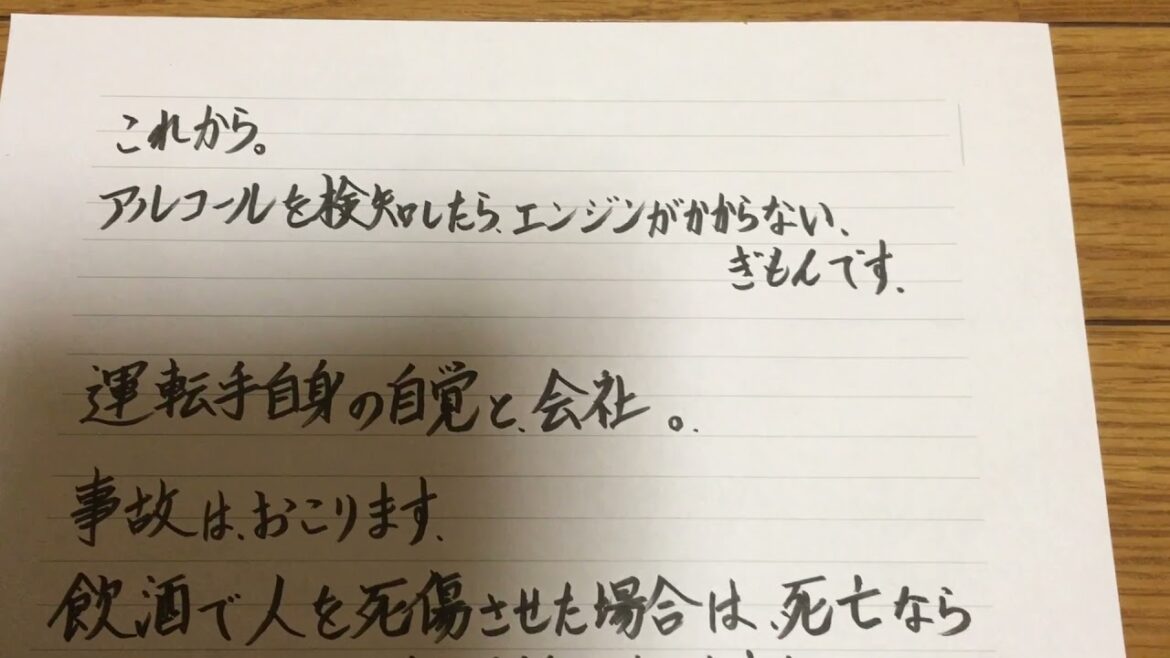 これから。
アルコールを検知したら、エンジンがかからない、
ぎもんです、
運転手自身の自覚と、会社。
事故は、おこります、
飲酒で人を死傷させた場合は、死亡なら